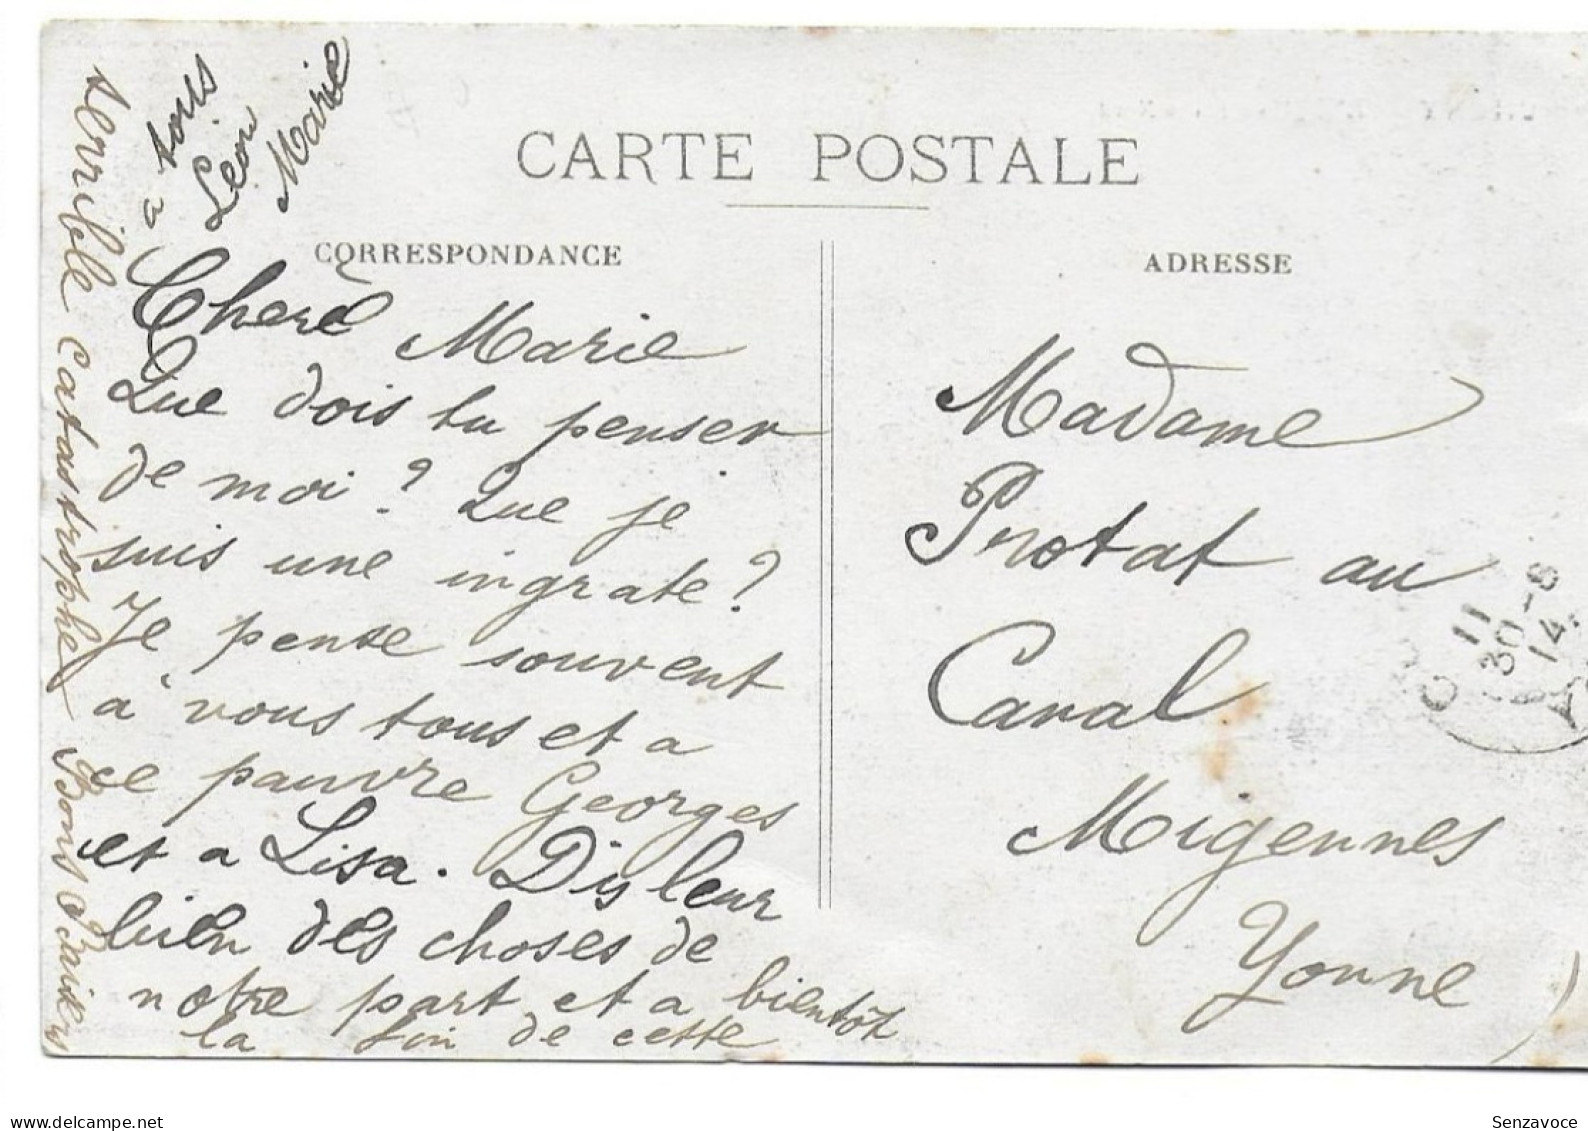 CARTE POSTALE
CORRESPONDANCE
ADRESSE
Cherè Marie
Que dois tu penser
de moi ? Que je
suis une ingrate ?
Je pense souvent
à vous tous et a
ce pauvre Georges
et a Lisa. Dis leur
bien des choses de
notre part et a bientôt
la fin de cette
terrible catastrophe Bons Baisers
a tous
Léon
Marie
Madame
Protat au
Canal
Migennes
Yonne
11
30-8
14
Senzavoce